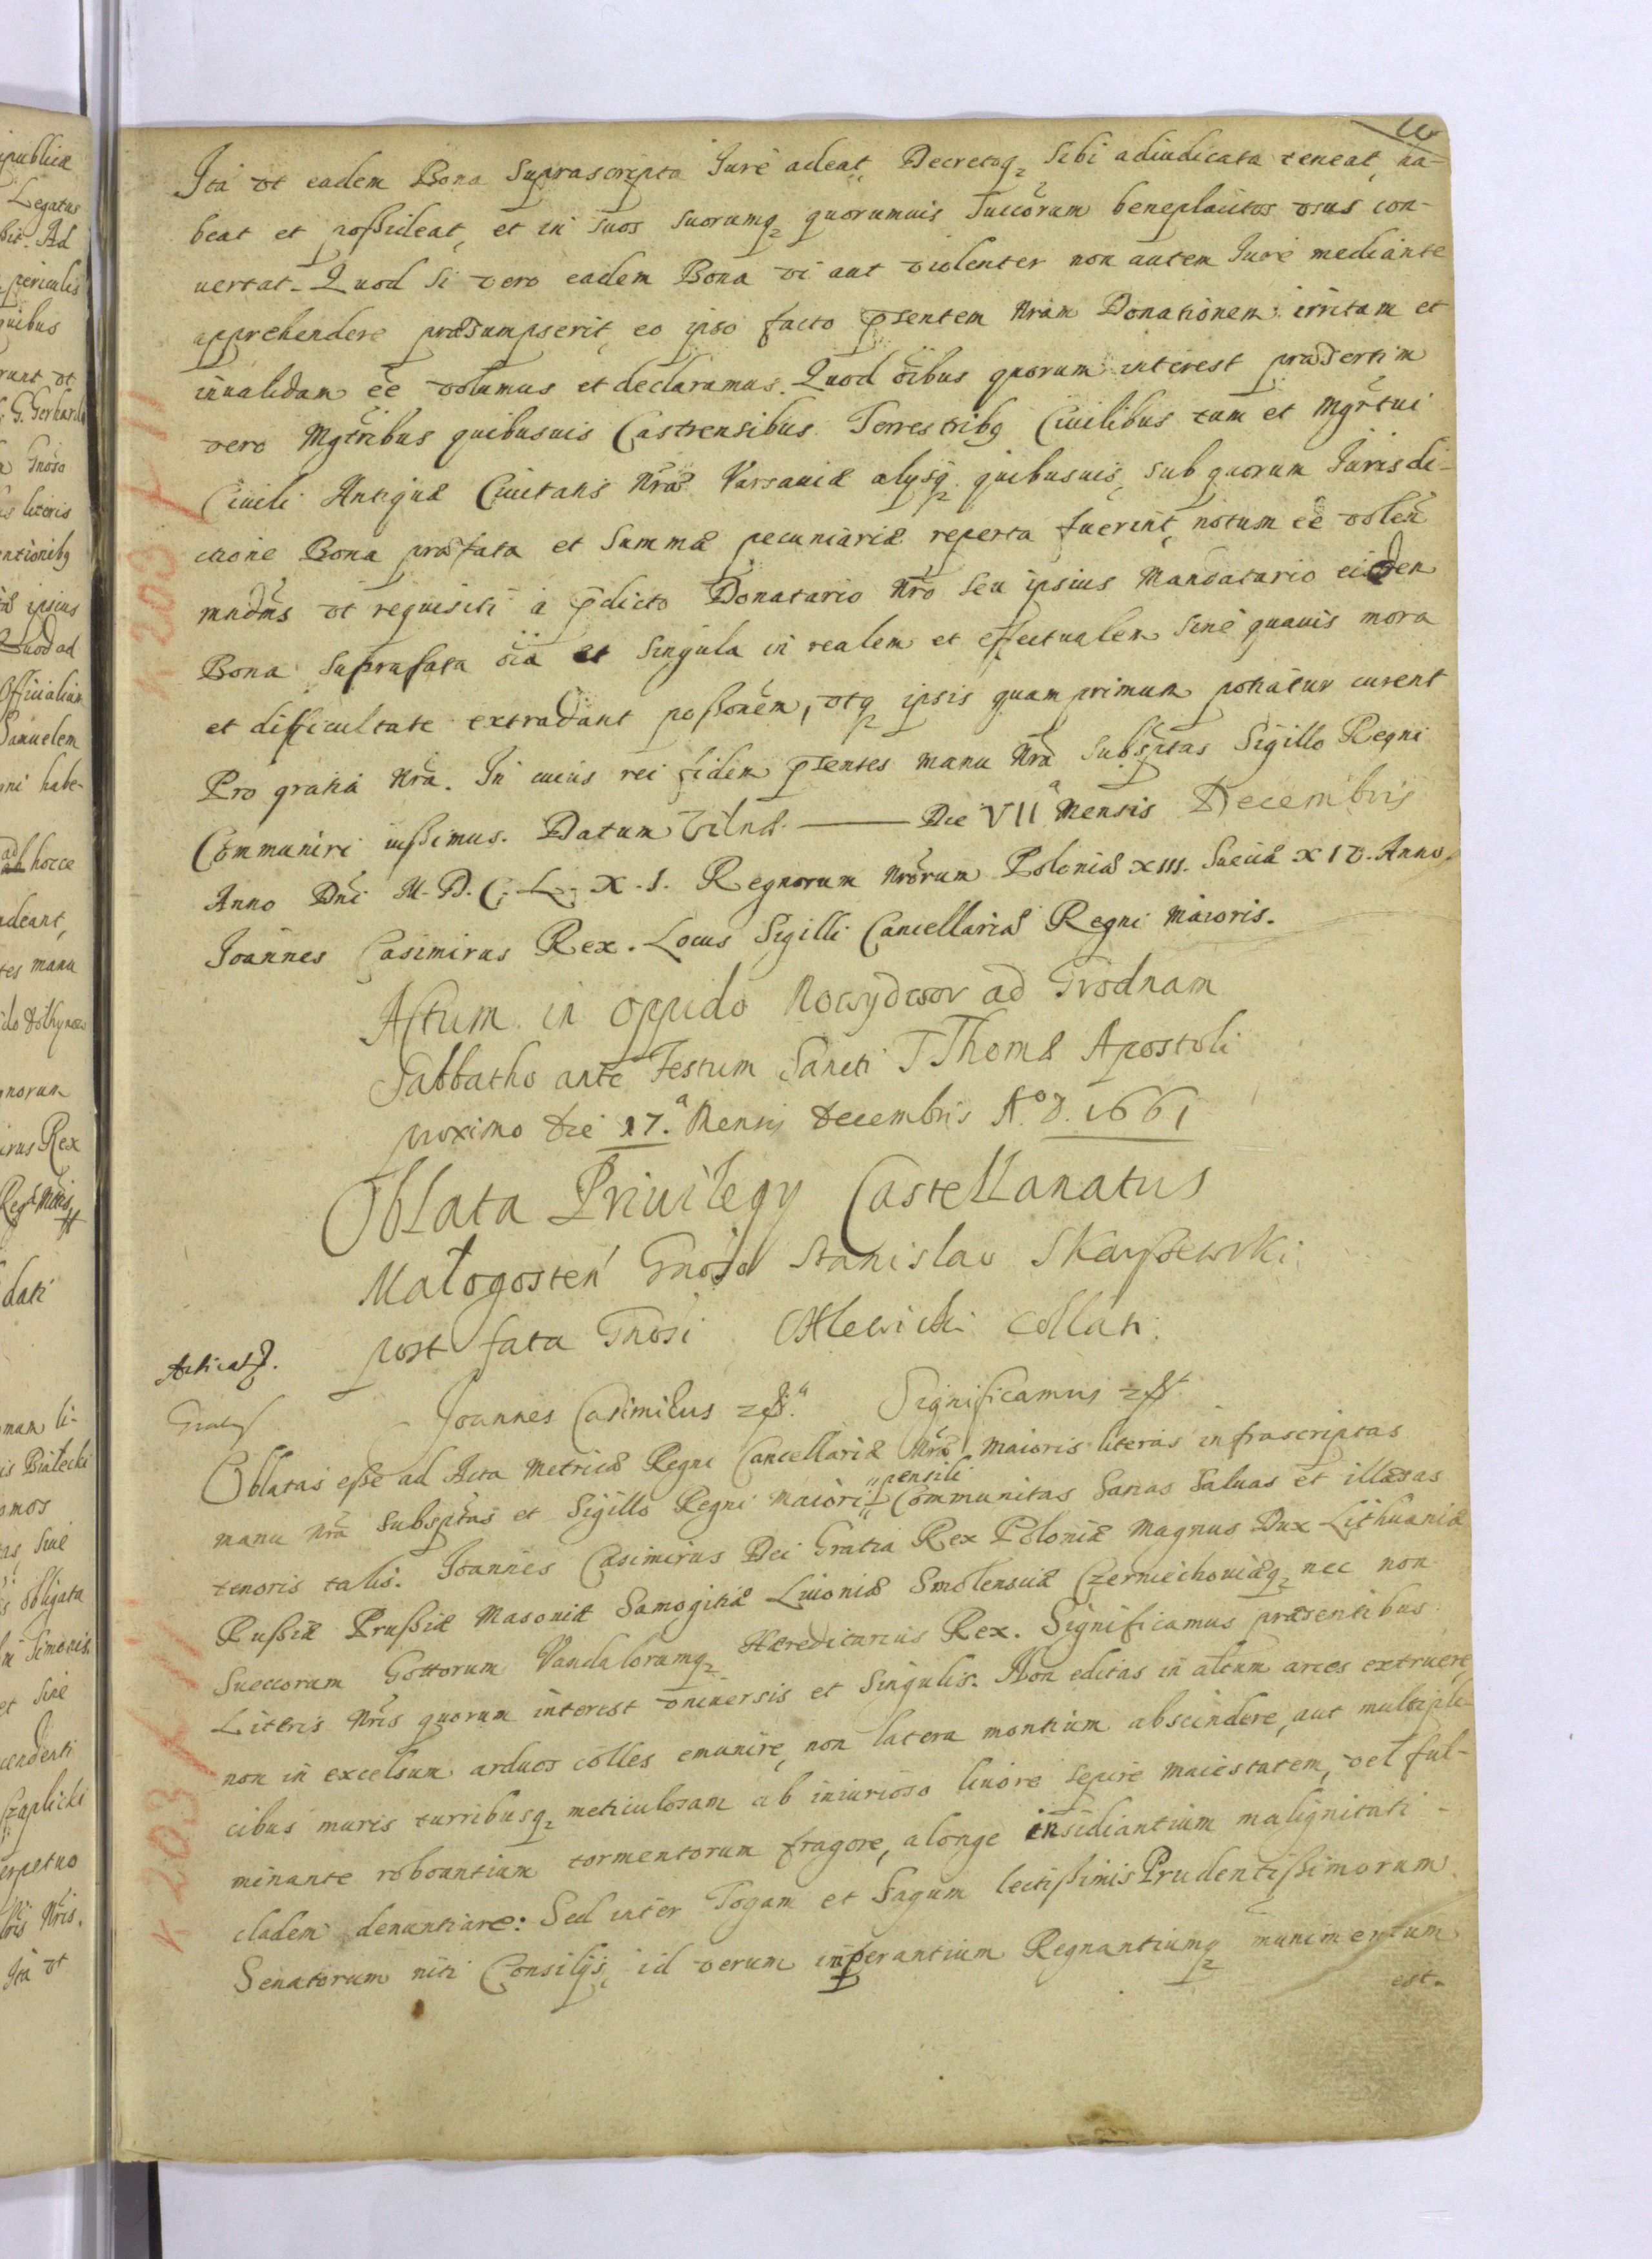 Ita vt eadem Bona Suprascripta Jure adeat, Decretoq; sibi adiudicata teneat, ha-
beat et possideat, et in suos suorumq; quorumuis Succorum beneplacitos vsus con-
uertat. Quod si vero eadem Bona vi aut violenter non autem Jure mediante
apprehendere præsumpserit, eo ipso facto pñtentem Nram Donationem irritam et
inualidam ee volumus et declaramus. Quod oibus quorum interest præsertim
vero Mgrtribus quibusuis Castrensibus Terrestribq Ciuilibus tam et Mgrtui
Ciuili Antiquæ Ciuitatis Nræ Varsauiæ alysq; quibusuis, sub quorum Jurisdi-
ctione Bona præfata et Summæ pecuniariæ reperta fuerint, notum ee volen
mndms vt requisiti a pdicto Donatario Nro seu ipsius Mandatario eidem
Bona suprafata oia et singula in realem et effectualem sine quauis mora
et difficultate extradant possonem, vtq; ipsis quamprimum potiatur curent
Pro gratia Nra. In cuius rei fidem psentes manu Nra Subsptas Sigillo Regni
Communiri iussimus. Datum Vilnæ. Die VII a Mensis Decembris
Anno Dni M. D. C. L. X. I. Regnorum Nrorum Poloniæ XIII. Sueciæ XIV. Anno
Joannes Casimirus Rex. Locus Sigilli Cancellariæ Regni Maioris.
Actum in oppido Nowydwor ad Grodnam
Sabbatho ante Festum Sancti Thomæ Apostoli
proximo die 17. a Mensis Decembris A.o D. 1661
Oblata Priuilegy Castellanatus
Małogosten Gnoso Stanislao Skarszewski
post fata Gnosi Oleluicki Collati.
Joannes Casimirus Significamus
Oblatas esse ad Acta Metricæ Regni Cancellariæ Nræ Maioris literas infrascriptas
manu Nra Subsptas et Sigillo Regni Maiori pensili Communitas Sanas Saluas et illæsas
tenoris talis. Joannes Casimirus Dei Gratia Rex Poloniæ Magnus Dux Lithuaniæ
Russiæ Prussiæ Masouiæ Samogitiæ Liuoniæ Smolensciæ Czerniechouiæq; nec non
Sueccorum Gottorum Vandalorumq; Hæreditarius Rex. Significamus præsentibus
Literis Nris quorum interest vniuersis et Singulis. Non editas in altum arces extruere,
non in excelsum arduos colles emunire, non latera montium abscindere, aut multipli-
cibus muris turribusq; meticulosam ab iniurioso liuore sepire Maiestatem, vel ful-
minante roboantium tormentorum fragore, alonge insidiantium malignitati
cladem denuntiare: Sed inter Togam et Sagum lectissimis Prudentissimorum
Senatorum niti Consilijs, id verum imperantium Regnantiumq; munimentum
est.